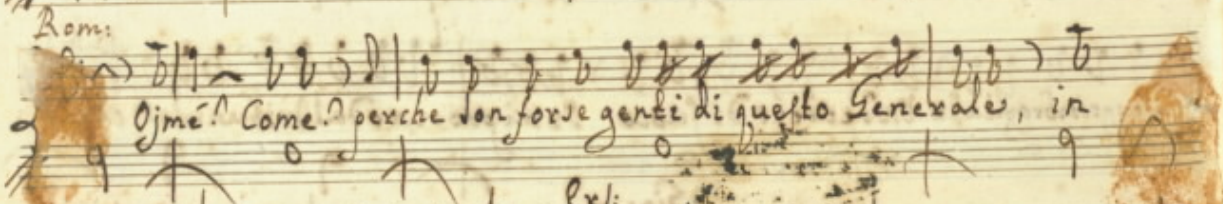 Rom:
Ojmé? Come? perche son forse genti di questo Generale, in